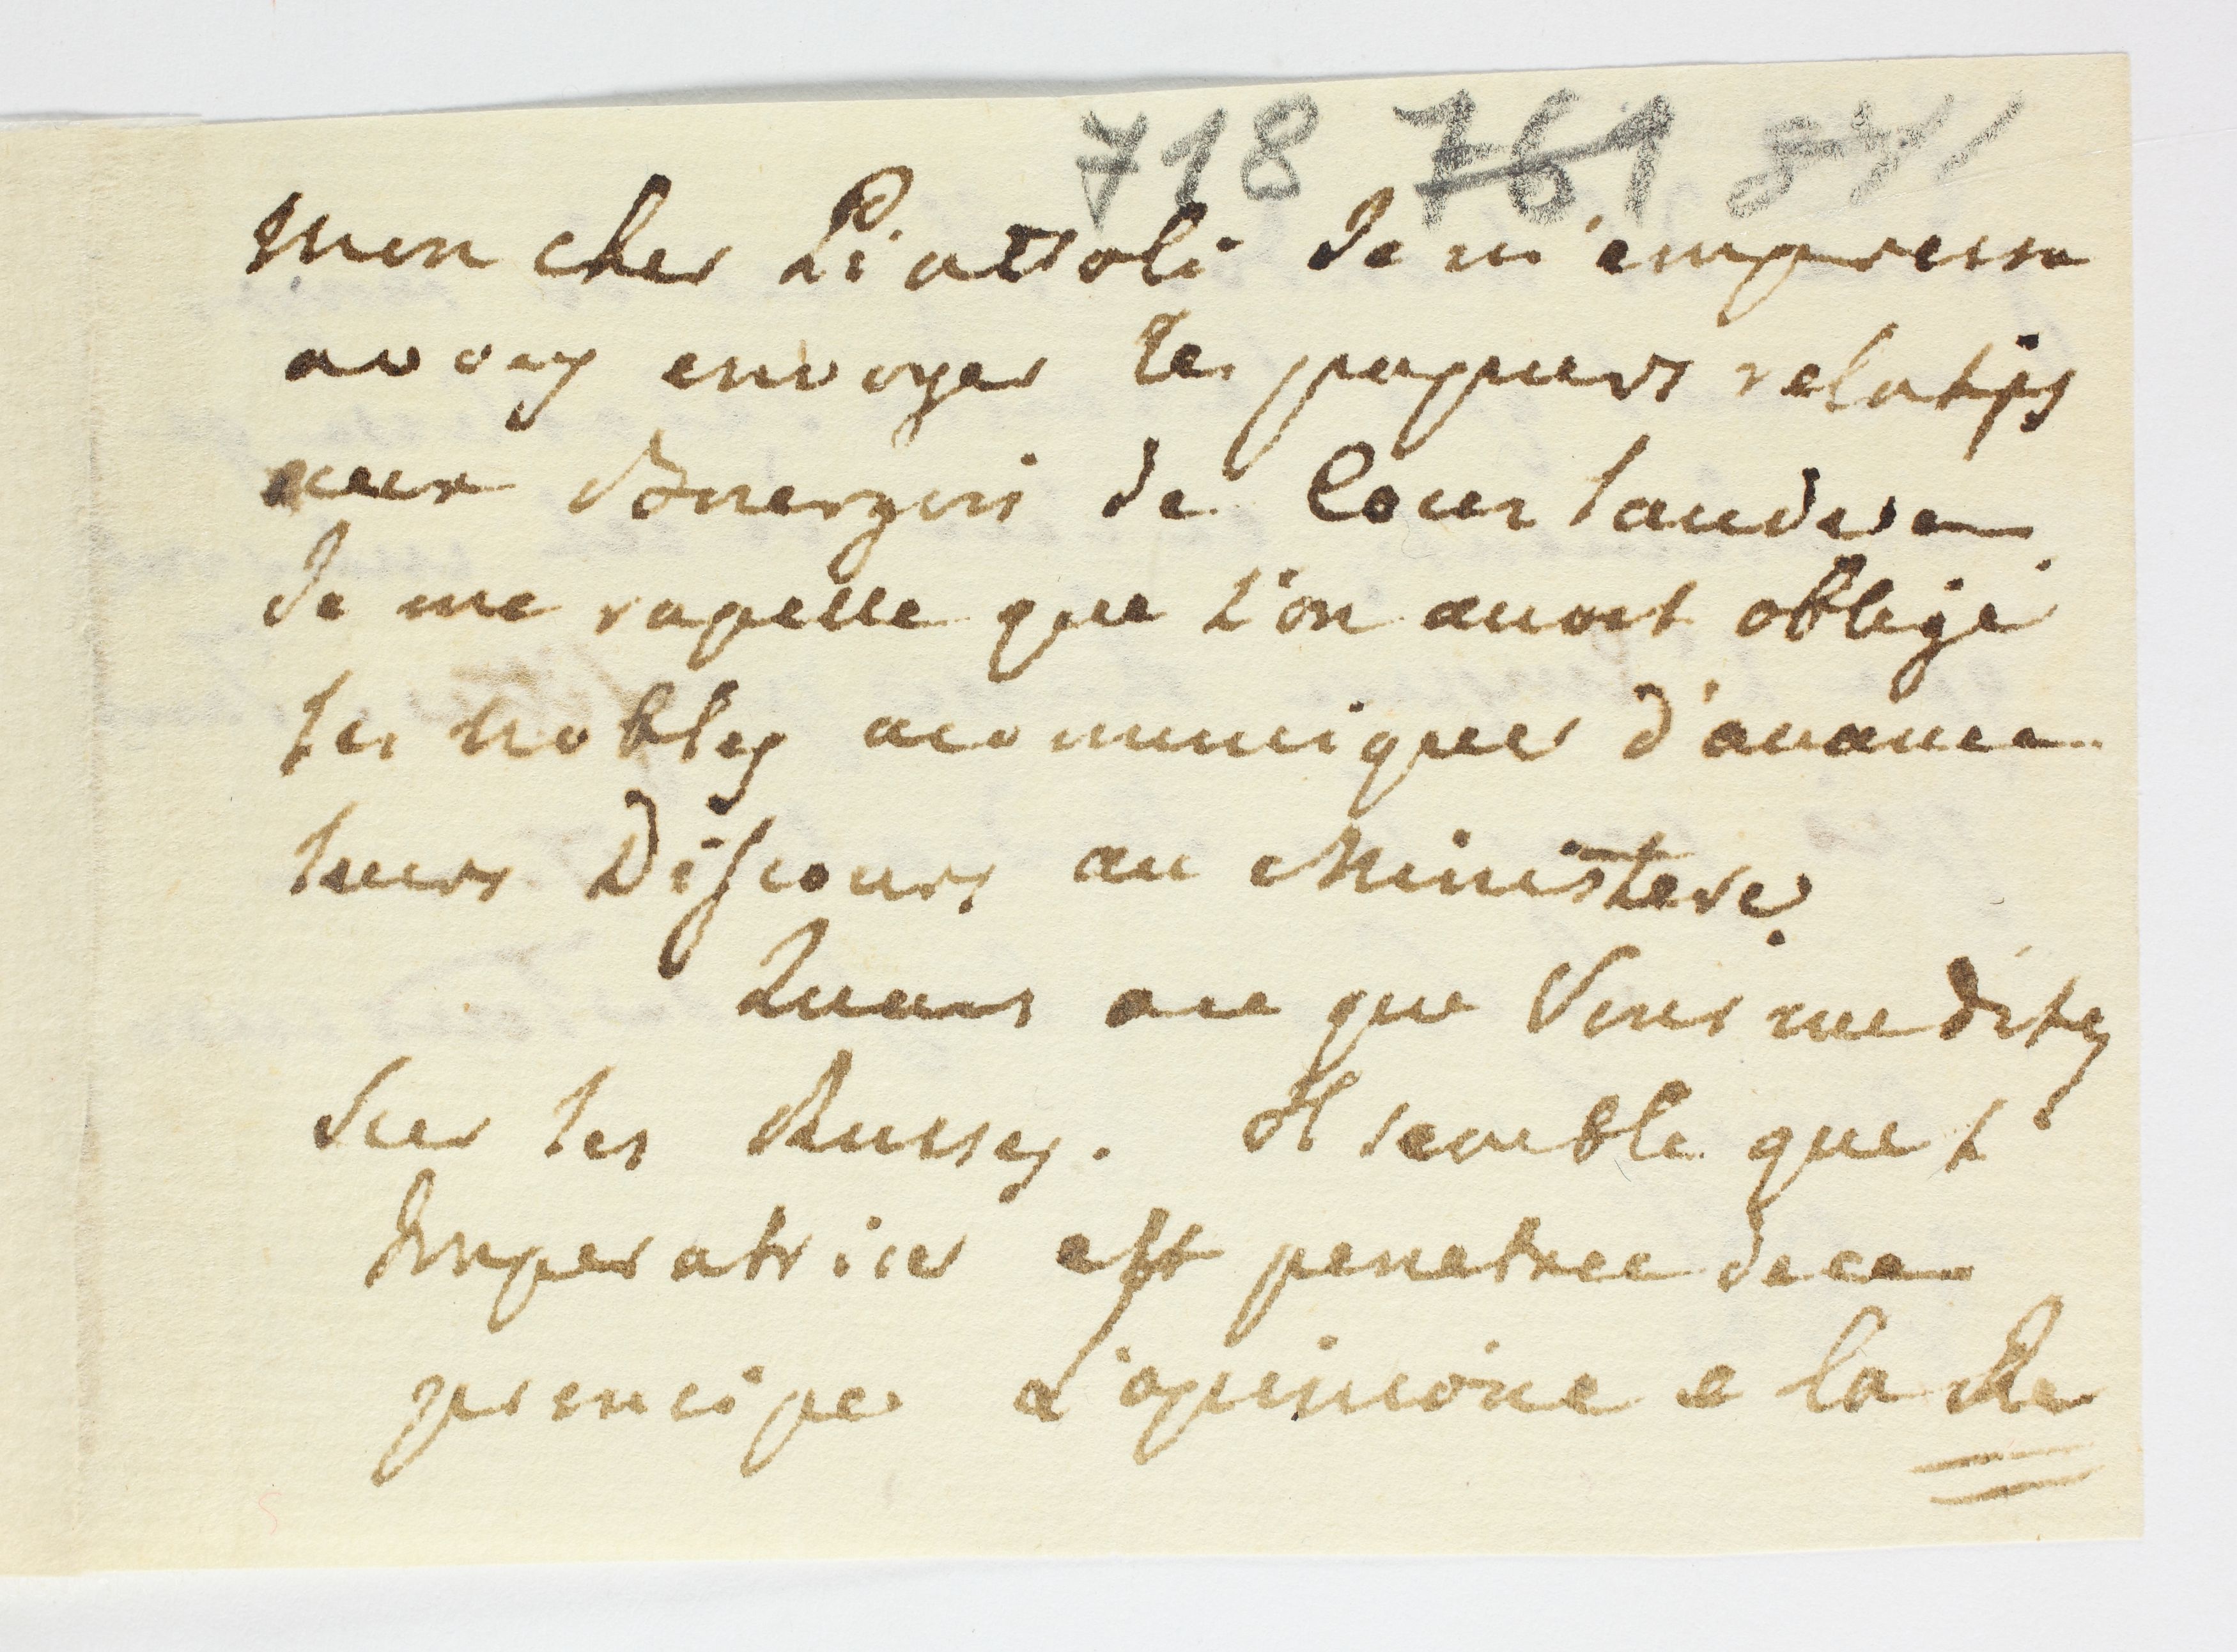 718 761
Mon cher Piattoli Je m'empresse
avous envoyer les papiers relatifs
aux Bourgois de Courlande
Je me rapelle que l'on avoit obligé
les nobles acomuniquer d'avance
leurs Discours au Ministere.
Quant ace que Vous me dites
Sur les Russes. Il semble que l'
Imperatrice est penetree de ce
principe L'opinione e la Re